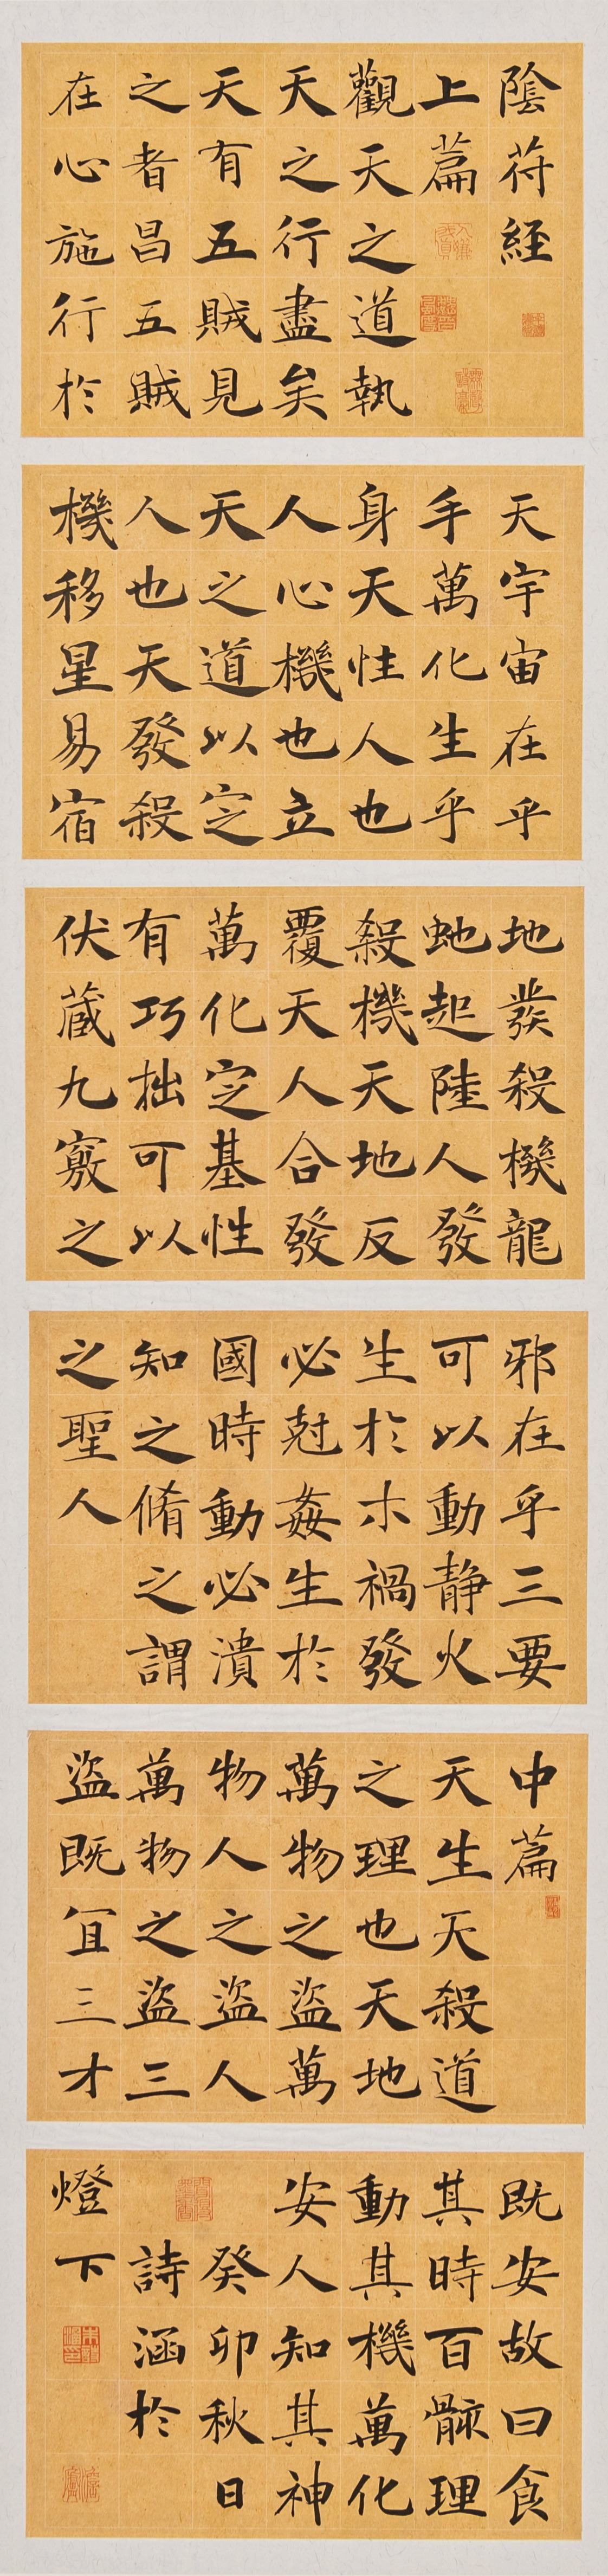 陰符經
上篇
觀天之道執
天之行盡矣
天有五賊見
之者昌五賊
在心施行於
天宇宙在乎
手萬化生乎
身天性人也
人心機也立
天之道以定
人也天發殺
機移星易宿
地發殺機龍
虵起陸人發
殺機天地反
覆天人合發
萬化定基性
有巧拙可以
伏藏九竅之
邪在乎三要
可以動靜火
生於木禍發
必尅姦生於
國時動必潰
知之脩之謂
之聖人
中篇
天生天殺道
之理也天地
萬物之盜萬
物人之盜人
萬物之盜三
盜既宜三才
既安故曰食
其時百骸理
動其機萬化
安人知其神
癸卯秋日
詩涵於
燈下